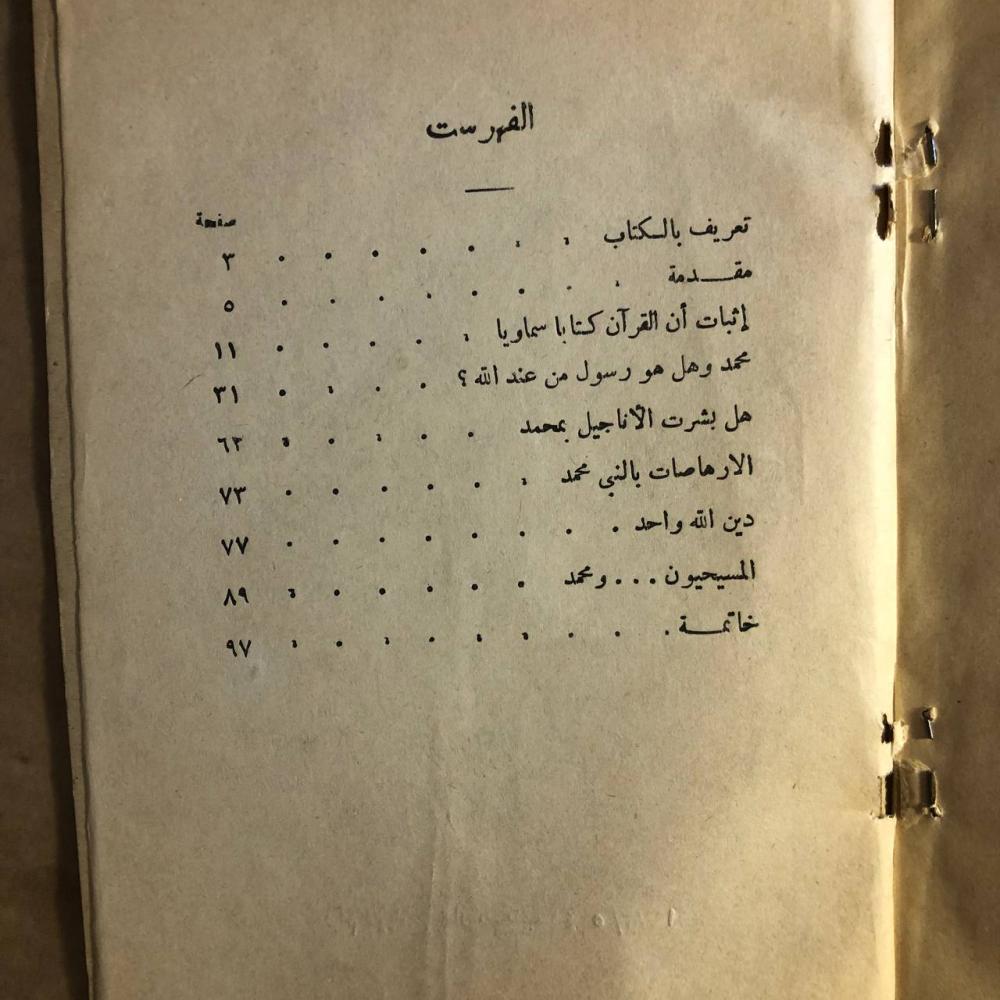 الفهرست
صفحة
تعريف بالكتاب . . . . . . . ٣
مقدمة . . . . . . . . ٥
إثبات أن القرآن كتابا سماويا . . . . . ١١
محمد وهل هو رسول من عند الله ؟ . . . . ٣١
هل بشرت الأناجيل بمحمد . . . . . ٦٢
الارهاصات بالنبي محمد . . . . . . ٧٣
دين الله واحد . . . . . . . . ٧٧
المسيحيون . . . ومحمد . . . . . . ٨٩
خاتمة . . . . . . . . . ٩٧